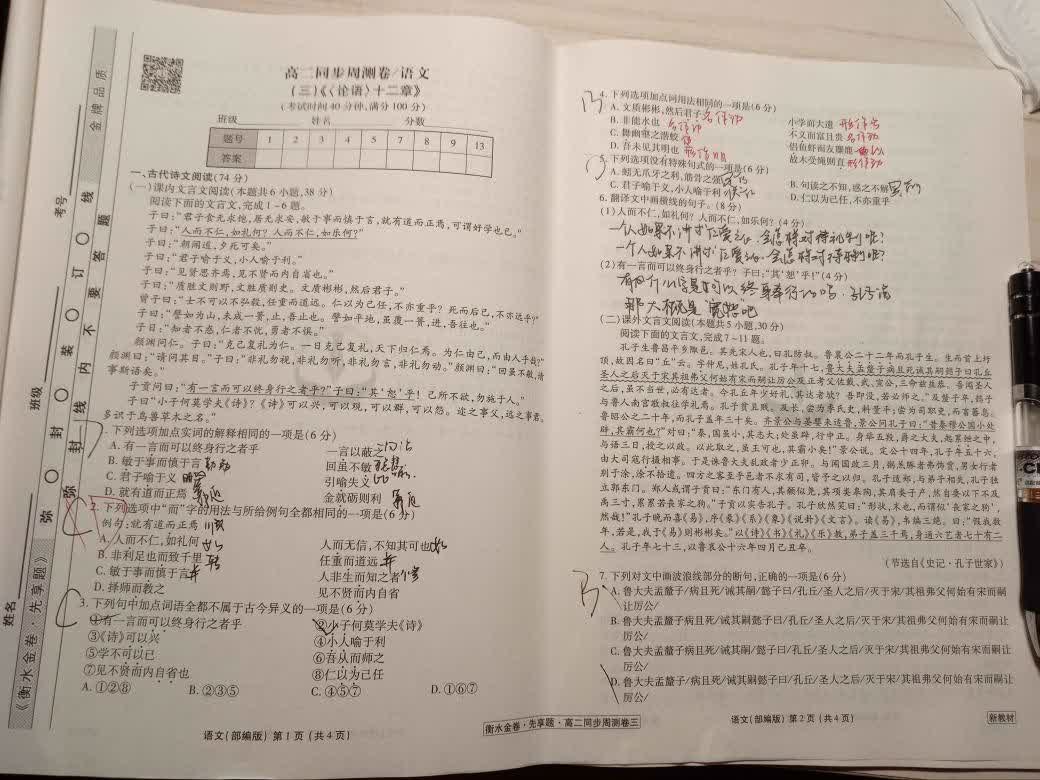 高二同步周测卷/语文
(三)《〈论语〉十二章》
(考试时间40分钟,满分100分)
班级 姓名 分数
题号 1 2 3 4 5 7 8 9 13
答案
一、古代诗文阅读(74分)
(一)课内文言文阅读(本题共6小题,38分)
阅读下面的文言文,完成1~6题。
子曰:“君子食无求饱,居无求安,敏于事而慎于言,就有道而正焉,可谓好学也已。”
子曰:“人而不仁,如礼何?人而不仁,如乐何?”
子曰:“朝闻道,夕死可矣。”
子曰:“君子喻于义,小人喻于利。”
子曰:“见贤思齐焉,见不贤而内自省也。”
子曰:“质胜文则野,文胜质则史。文质彬彬,然后君子。”
曾子曰:“士不可以不弘毅,任重而道远。仁以为己任,不亦重乎?死而后已,不亦远乎?”
子曰:“譬如为山,未成一篑,止,吾止也。譬如平地,虽覆一篑,进,吾往也。”
子曰:“知者不惑,仁者不忧,勇者不惧。”
颜渊问仁。子曰:“克己复礼为仁。一日克己复礼,天下归仁焉。为仁由己,而由人乎哉?”
颜渊曰:“请问其目。”子曰:“非礼勿视,非礼勿听,非礼勿言,非礼勿动。”颜渊曰:“回虽不敏,请
事斯语矣。”
子贡问曰:“有一言而可以终身行之者乎?”子曰:“其‘恕’乎!己所不欲,勿施于人。”
子曰“小子何莫学夫《诗》?《诗》可以兴,可以观,可以群,可以怨。迩之事父,远之事君,
多识于鸟兽草木之名。”
下列选项加点实词的解释相同的一项是(6分)
A. 有一言而可以终身行之者乎 一言以蔽之
B. 敏于事而慎于言 回虽不敏
C. 君子喻于义 引喻失义
D. 就有道而正焉 金就砺则利
2. 下列选项中“而”字的用法与所给例句全都相同的一项是(6分)
例句:就有道而正焉
A. 人而不仁,如礼何 人而无信,不知其可也
B. 非利足也而致千里 任重而道远
C. 敏于事而慎于言 人非生而知之者
D. 择师而教之 见不贤而内自省
3. 下列句中加点词语全都不属于古今异义的一项是(6分)
①有一言而可以终身行之者乎 ②小子何莫学夫《诗》
③《诗》可以兴 ④小人喻于利
⑤学不可以已 ⑥吾从而师之
⑦见不贤而内自省也 ⑧仁以为己任
A. ①②⑧ B. ②③⑤ C. ④⑤⑦ D. ①⑥⑦
语文(部编版) 第1页(共4页)
金牌品质
考号
班级
姓名
弥 封 装 订 线 内 不 要 答 题
《衡水金卷·先享题》
B
4. 下列选项加点词用法相同的一项是(6分)
A. 文质彬彬,然后君子 名作动 小学而大遗 形作名
B. 非能水也 名作动 不义而富且贵 名作动
C. 舞幽壑之潜蛟 侣鱼虾而友麋鹿
D. 吾未见其明也 故木受绳则直
5. 下列选项没有特殊句式的一项是(6分)
A. 蚓无爪牙之利,筋骨之强 B. 句读之不知,惑之不解
C. 君子喻于义,小人喻于利 D. 仁以为己任,不亦重乎
6. 翻译文中画横线的句子。(8分)
(1)人而不仁,如礼何?人而不仁,如乐何?(4分)
(2)有一言而可以终身行之者乎?子曰:“其‘恕’乎!”(4分)
那大概是宽恕吧
(二)课外文言文阅读(本题共5小题,30分)
阅读下面的文言文,完成7~11题。
孔子生鲁昌平乡陬邑。其先宋人也,曰孔防叔。鲁襄公二十二年而孔子生。生而首上圩
顶,故因名曰“丘”云。字仲尼,姓孔氏。孔子年十七,鲁大夫孟釐子病且死诫其嗣懿子曰孔丘
圣人之后灭于宋其祖弗父何始有宋而嗣让厉公及正考父佐戴、武、宣公,三命兹益恭。吾闻圣人
之后,虽不当世,必有达者。今孔丘年少好礼,其达者欤?吾即没,若必师之。”及釐子卒,懿子
与鲁人南宫敬叔往学礼焉。孔子贫且贱。及长,尝为季氏史,料量平;尝为司职吏,而畜蕃息。
鲁昭公之二十年,而孔子盖年三十矣。齐景公与晏婴来适鲁,景公问孔子曰:“昔秦穆公国小处
辟,其霸何也?”对曰:“秦,国虽小,其志大;处虽辟,行中正。身举五羖,爵之大夫,起累绁之中,
与语三日,授之以政。以此取之,虽王可也,其霸小矣!”景公说。定公十四年,孔子年五十六,
由大司寇行摄相事。于是诛鲁大夫乱政者少正卯。与闻国政三月,粥羔豚者弗饰贾,男女行者
别于涂,涂不拾遗。四方之客至乎邑者不求有司,皆予之以归。孔子适郑,与弟子相失,孔子独
立郭东门。郑人或谓子贡曰:“东门有人,其颡似尧,其项类皋陶,其肩类子产,然自要以下不及
禹三寸,累累若丧家之狗。”子贡以实告孔子。孔子欣然笑曰:“形状,末也,而谓似‘丧家之狗’,
然哉!”孔子晚而喜《易》,序《彖》《系》《象》《说卦》《文言》。读《易》,韦编三绝。曰:“假我数
年,若是,我于《易》则彬彬矣。”以《诗》《书》《礼》《乐》教,弟子盖三千焉,身通六艺者七十有二
人。孔子年七十三,以鲁哀公十六年四月己丑卒。
(节选自《史记·孔子世家》)
B
7. 下列对文中画波浪线部分的断句,正确的一项是(6分)
A. 鲁大夫孟釐子/病且死/诫其嗣/懿子曰/孔丘/圣人之后/灭于宋/其祖弗父何始有宋而嗣
让厉公/
B. 鲁大夫孟釐子病且死/诫其嗣懿子曰/孔丘/圣人之后/灭于宋/其祖弗父何始有宋而嗣让
厉公/
C. 鲁大夫孟釐子病且死/诫其嗣/懿子曰/孔丘/圣人之后/灭于宋/其祖弗父何始有宋而嗣让
厉公/
D. 鲁大夫孟釐子/病且死/诫其嗣懿子曰/孔丘/圣人之后/灭于宋/其祖弗父何始有宋而嗣让
厉公/
衡水金卷·先享题·高二同步周测卷三
语文(部编版) 第2页(共4页)
新教材